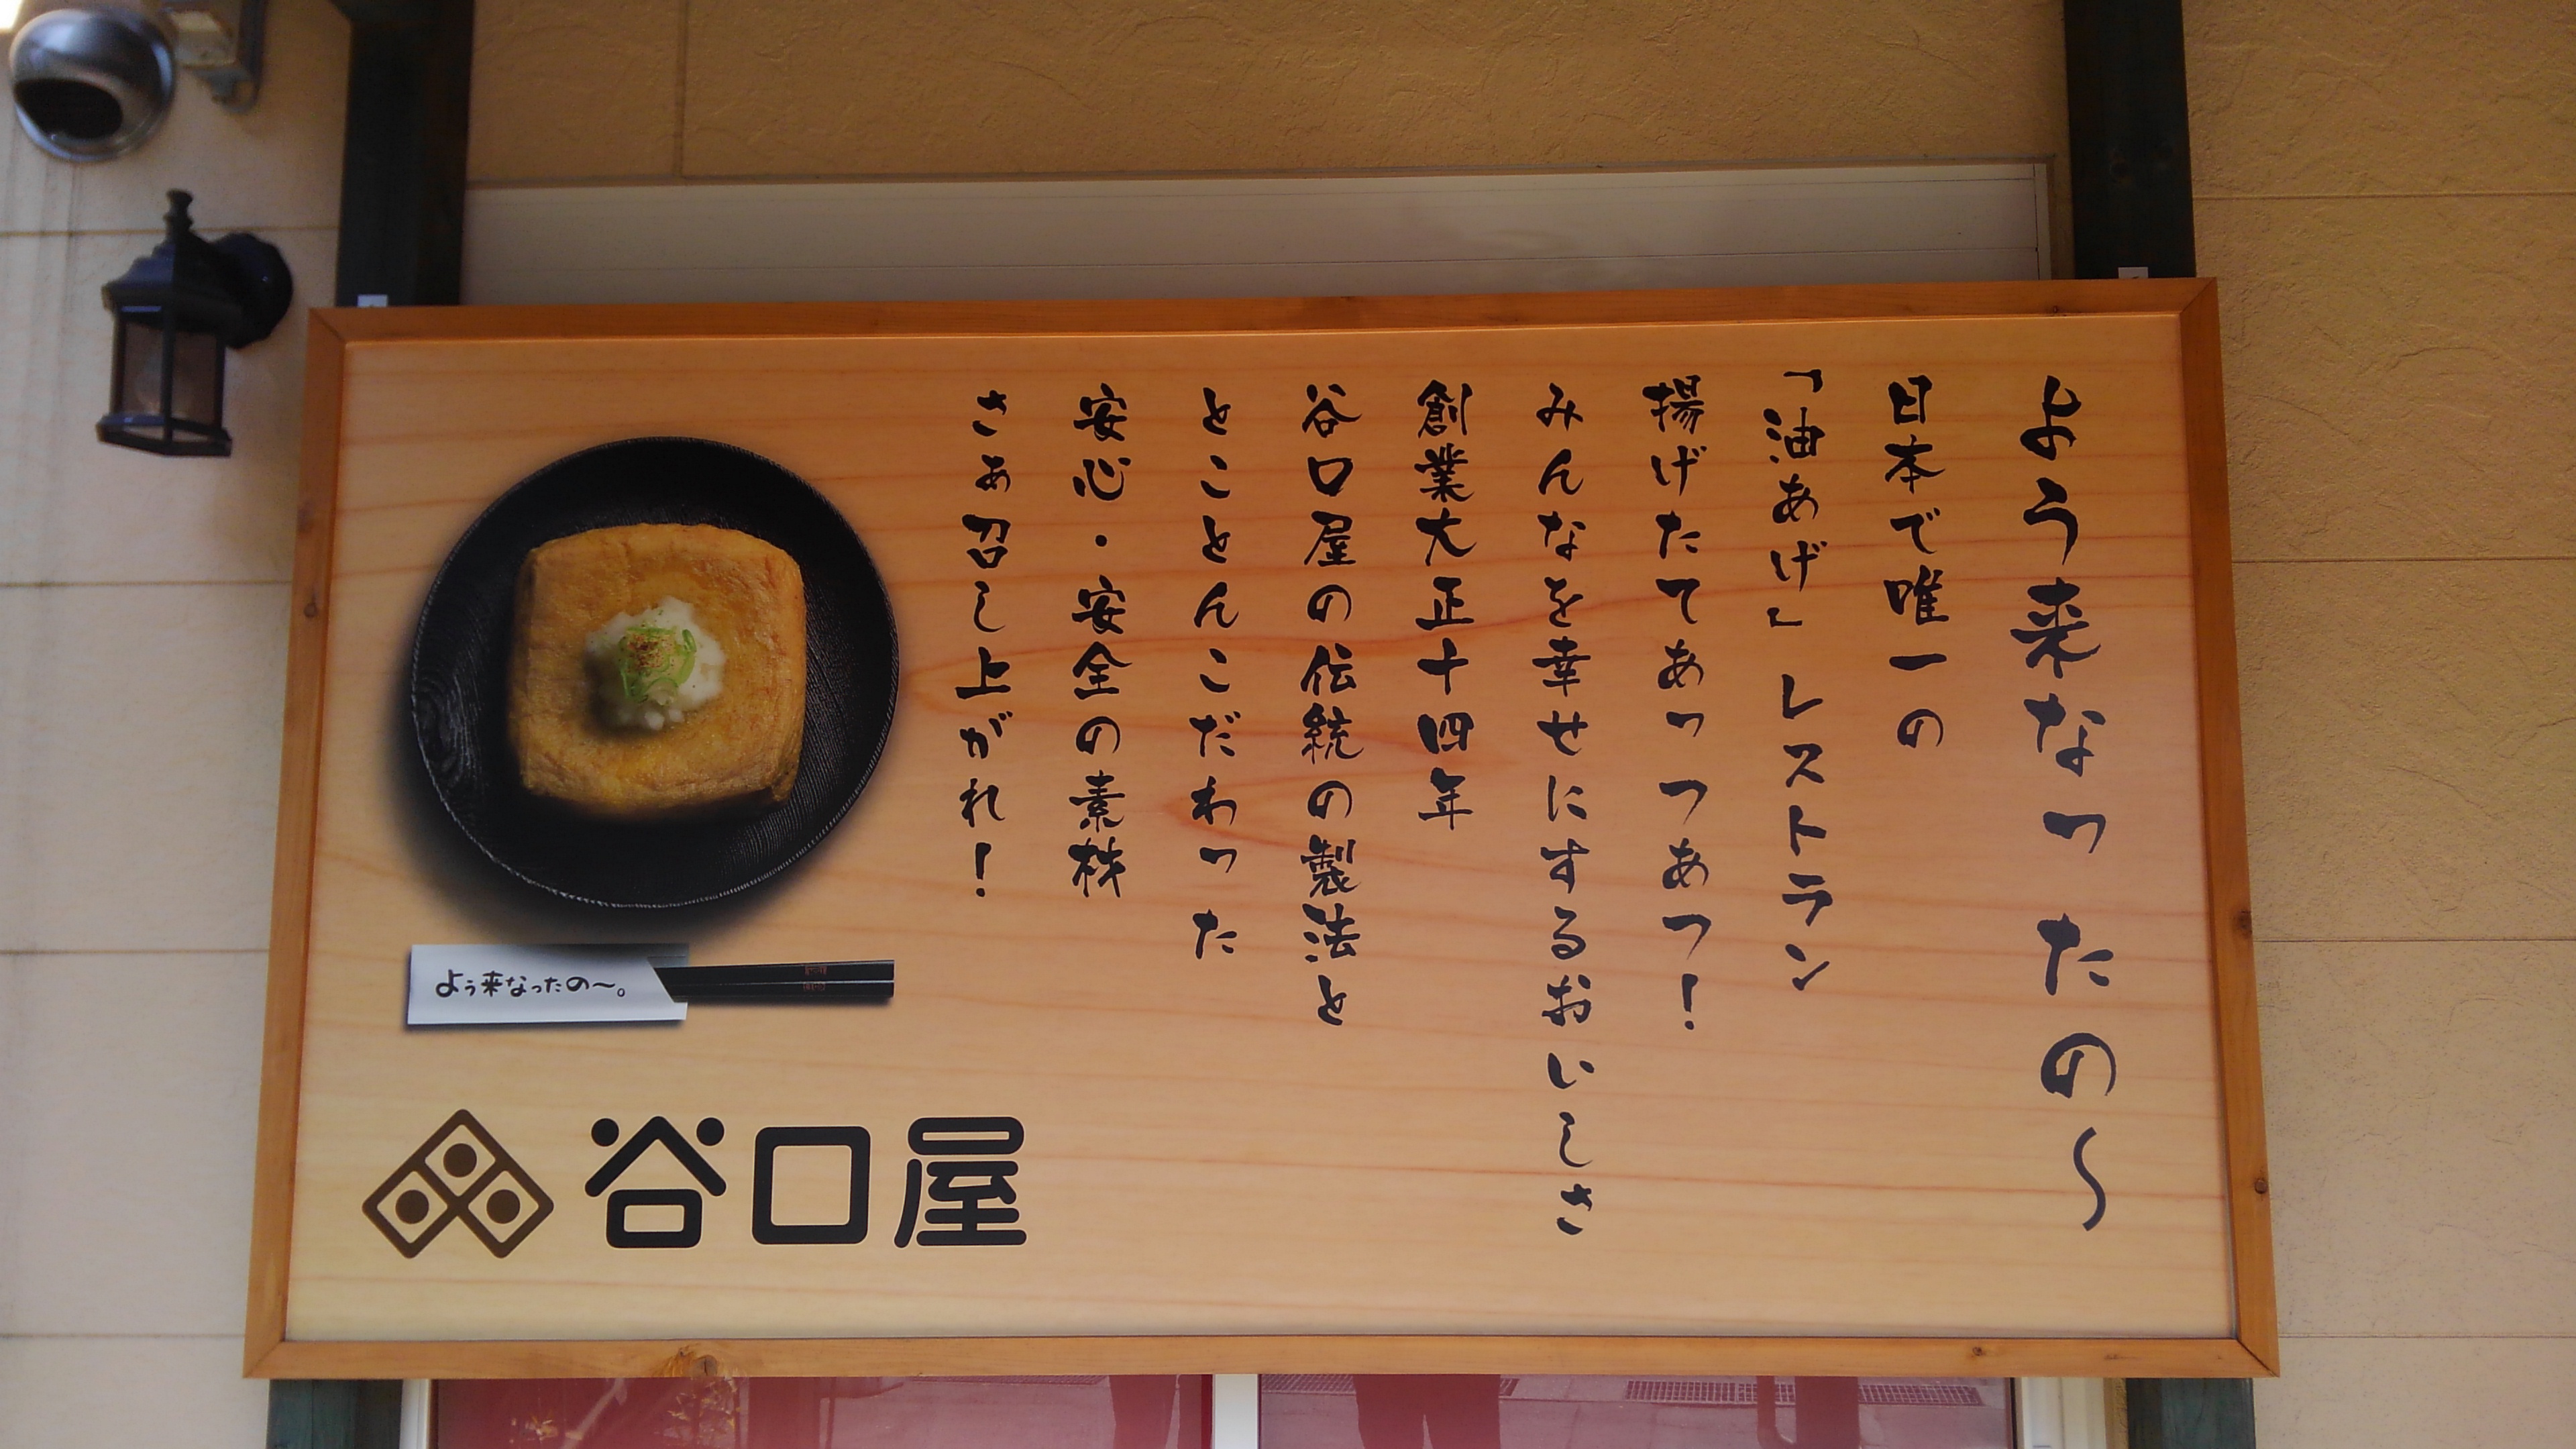 よう来なったの〜
日本で唯一の
「油あげ」レストラン
揚げたてあっつあつ！
みんなを幸せにするおいしさ
創業大正十四年
谷口屋の伝統の製法と
とことんこだわった
安心・安全の素材
さぁ召し上がれ！
よう来なったの〜。
谷口屋